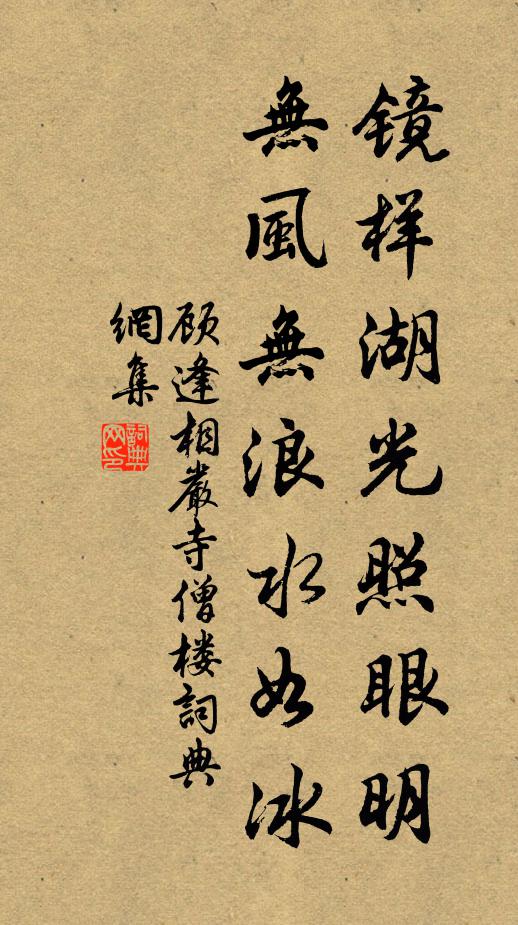 镜样湖光照眼明
無風無浪水如冰
顾逢相巖寺僧楼詞典
網集
詞典网印